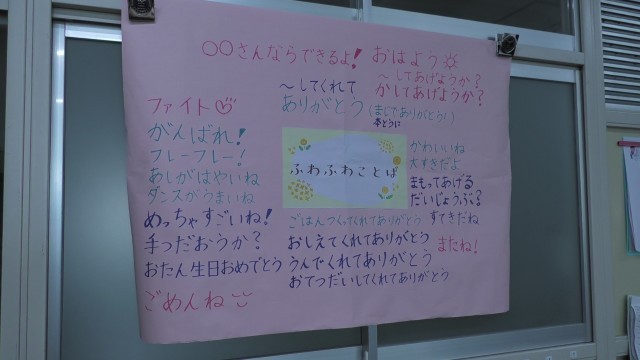 〇〇さんならできるよ!
おはよう
〜してあげようか?
かしてあげようか?
〜してくれて
ありがとう
(まじでありがとう!)
本とうに
ファイト♡
がんばれ!
フレーフレー!
あしがはやいね
ダンスがうまいね
めっちゃすごいね!
手つだおうか?
おたん生日おめでとう
ごめんね
ふわふわことば
かわいいね
大すきだよ
まもってあげる
だいじょうぶ?
すてきだね
またね!
ごはんつくってくれてありがとう
おしえてくれてありがとう
うんでくれてありがとう
おてつだいしてくれてありがとう